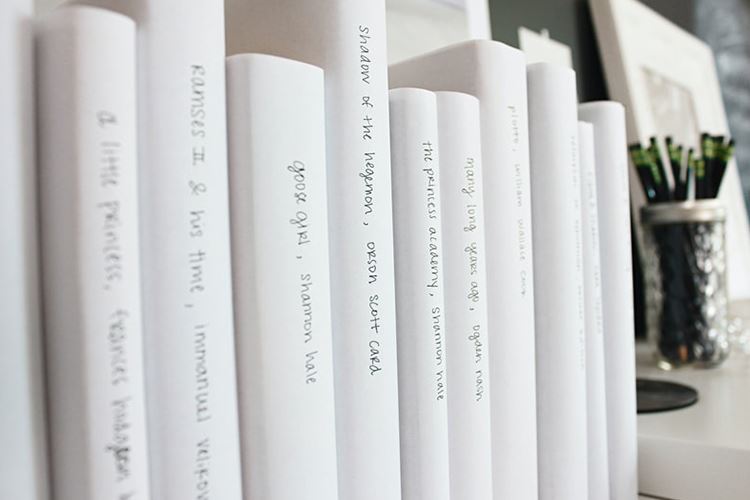 a little princess, frances hodgson b
Ramses II & his time, immanuel velikov
goose girl, shannon hale
shadow of the hegemon, orson scott card
the princess academy, shannon hale
many long years ago, ogden nash
plots, william wallace cook